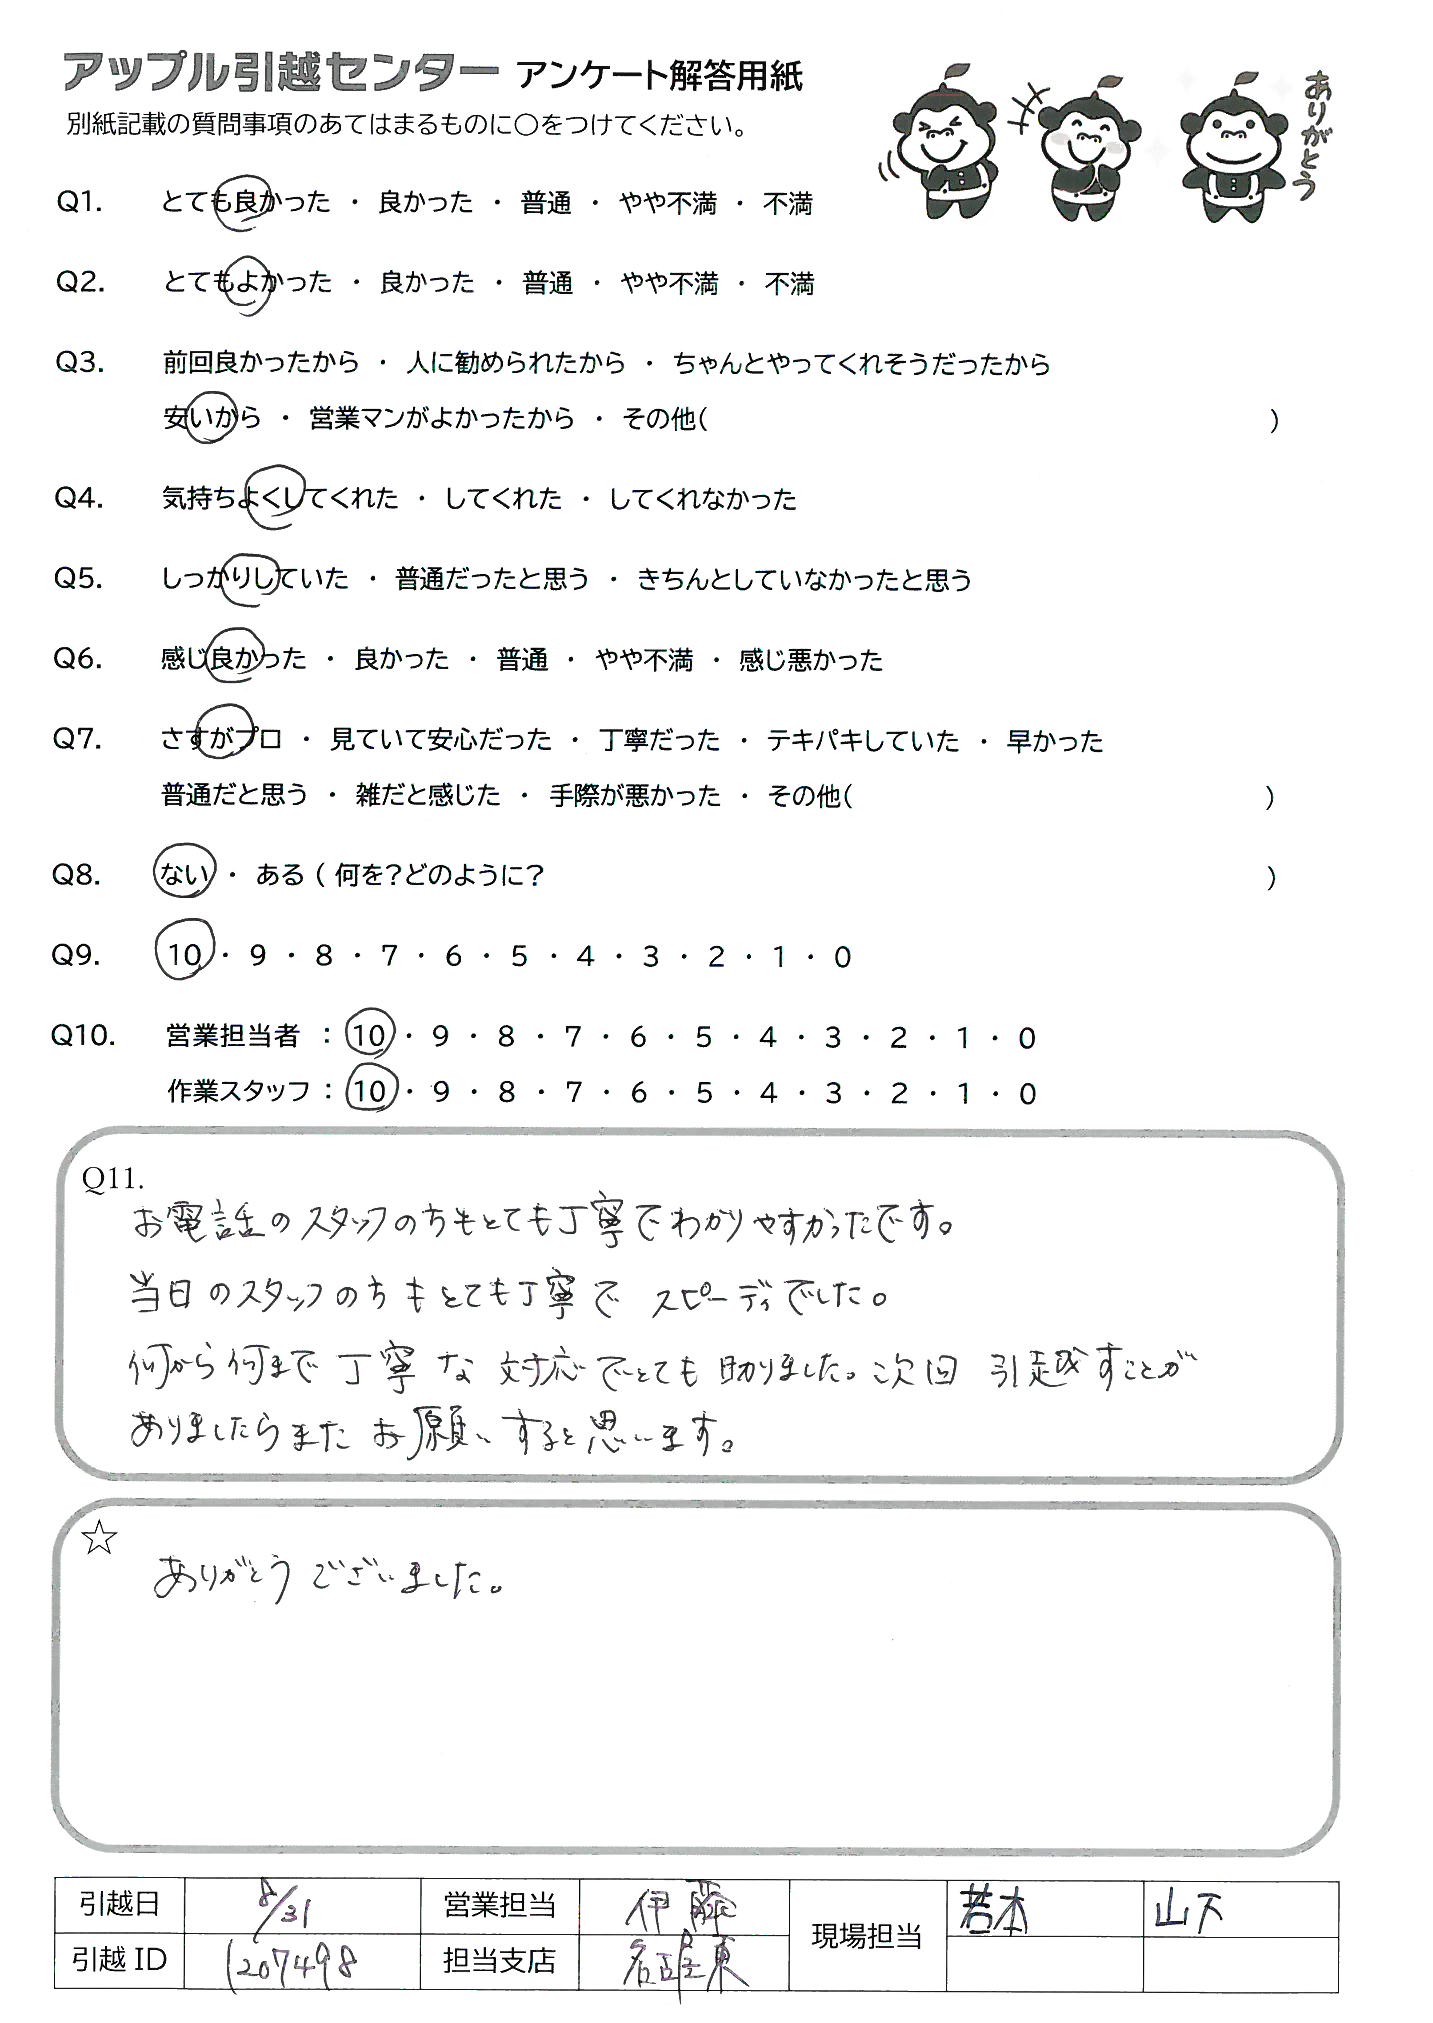 アップル引越センター アンケート解答用紙
別紙記載の質問事項のあてはまるものに〇をつけてください。
ありがとう
Q1. とても良かった ・ 良かった ・ 普通 ・ やや不満 ・ 不満
Q2. とてもよかった ・ 良かった ・ 普通 ・ やや不満 ・ 不満
Q3. 前回良かったから ・ 人に勧められたから ・ ちゃんとやってくれそうだったから
安いから ・ 営業マンがよかったから ・ その他( )
Q4. 気持ちよくしてくれた ・ してくれた ・ してくれなかった
Q5. しっかりしていた ・ 普通だったと思う ・ きちんとしていなかったと思う
Q6. 感じ良かった ・ 良かった ・ 普通 ・ やや不満 ・ 感じ悪かった
Q7. さすがプロ ・ 見ていて安心だった ・ 丁寧だった ・ テキパキしていた ・ 早かった
普通だと思う ・ 雑だと感じた ・ 手際が悪かった ・ その他( )
Q8. ない ・ ある ( 何を?どのように? )
Q9. 10 ・ 9 ・ 8 ・ 7 ・ 6 ・ 5 ・ 4 ・ 3 ・ 2 ・ 1 ・ 0
Q10. 営業担当者 : 10 ・ 9 ・ 8 ・ 7 ・ 6 ・ 5 ・ 4 ・ 3 ・ 2 ・ 1 ・ 0
作業スタッフ : 10 ・ 9 ・ 8 ・ 7 ・ 6 ・ 5 ・ 4 ・ 3 ・ 2 ・ 1 ・ 0
Q11.
お電話のスタッフの方もとても丁寧でわかりやすかったです。
当日のスタッフの方もとても丁寧でスピーディでした。
何から何まで丁寧な対応でとても助りました。次回 引越すことが
ありましたらまたお願いすると思います。
☆
ありがとうございました。
引越日 8/31 営業担当 伊藤 現場担当 若本 山下
引越ID 1207498 担当支店 名古屋東